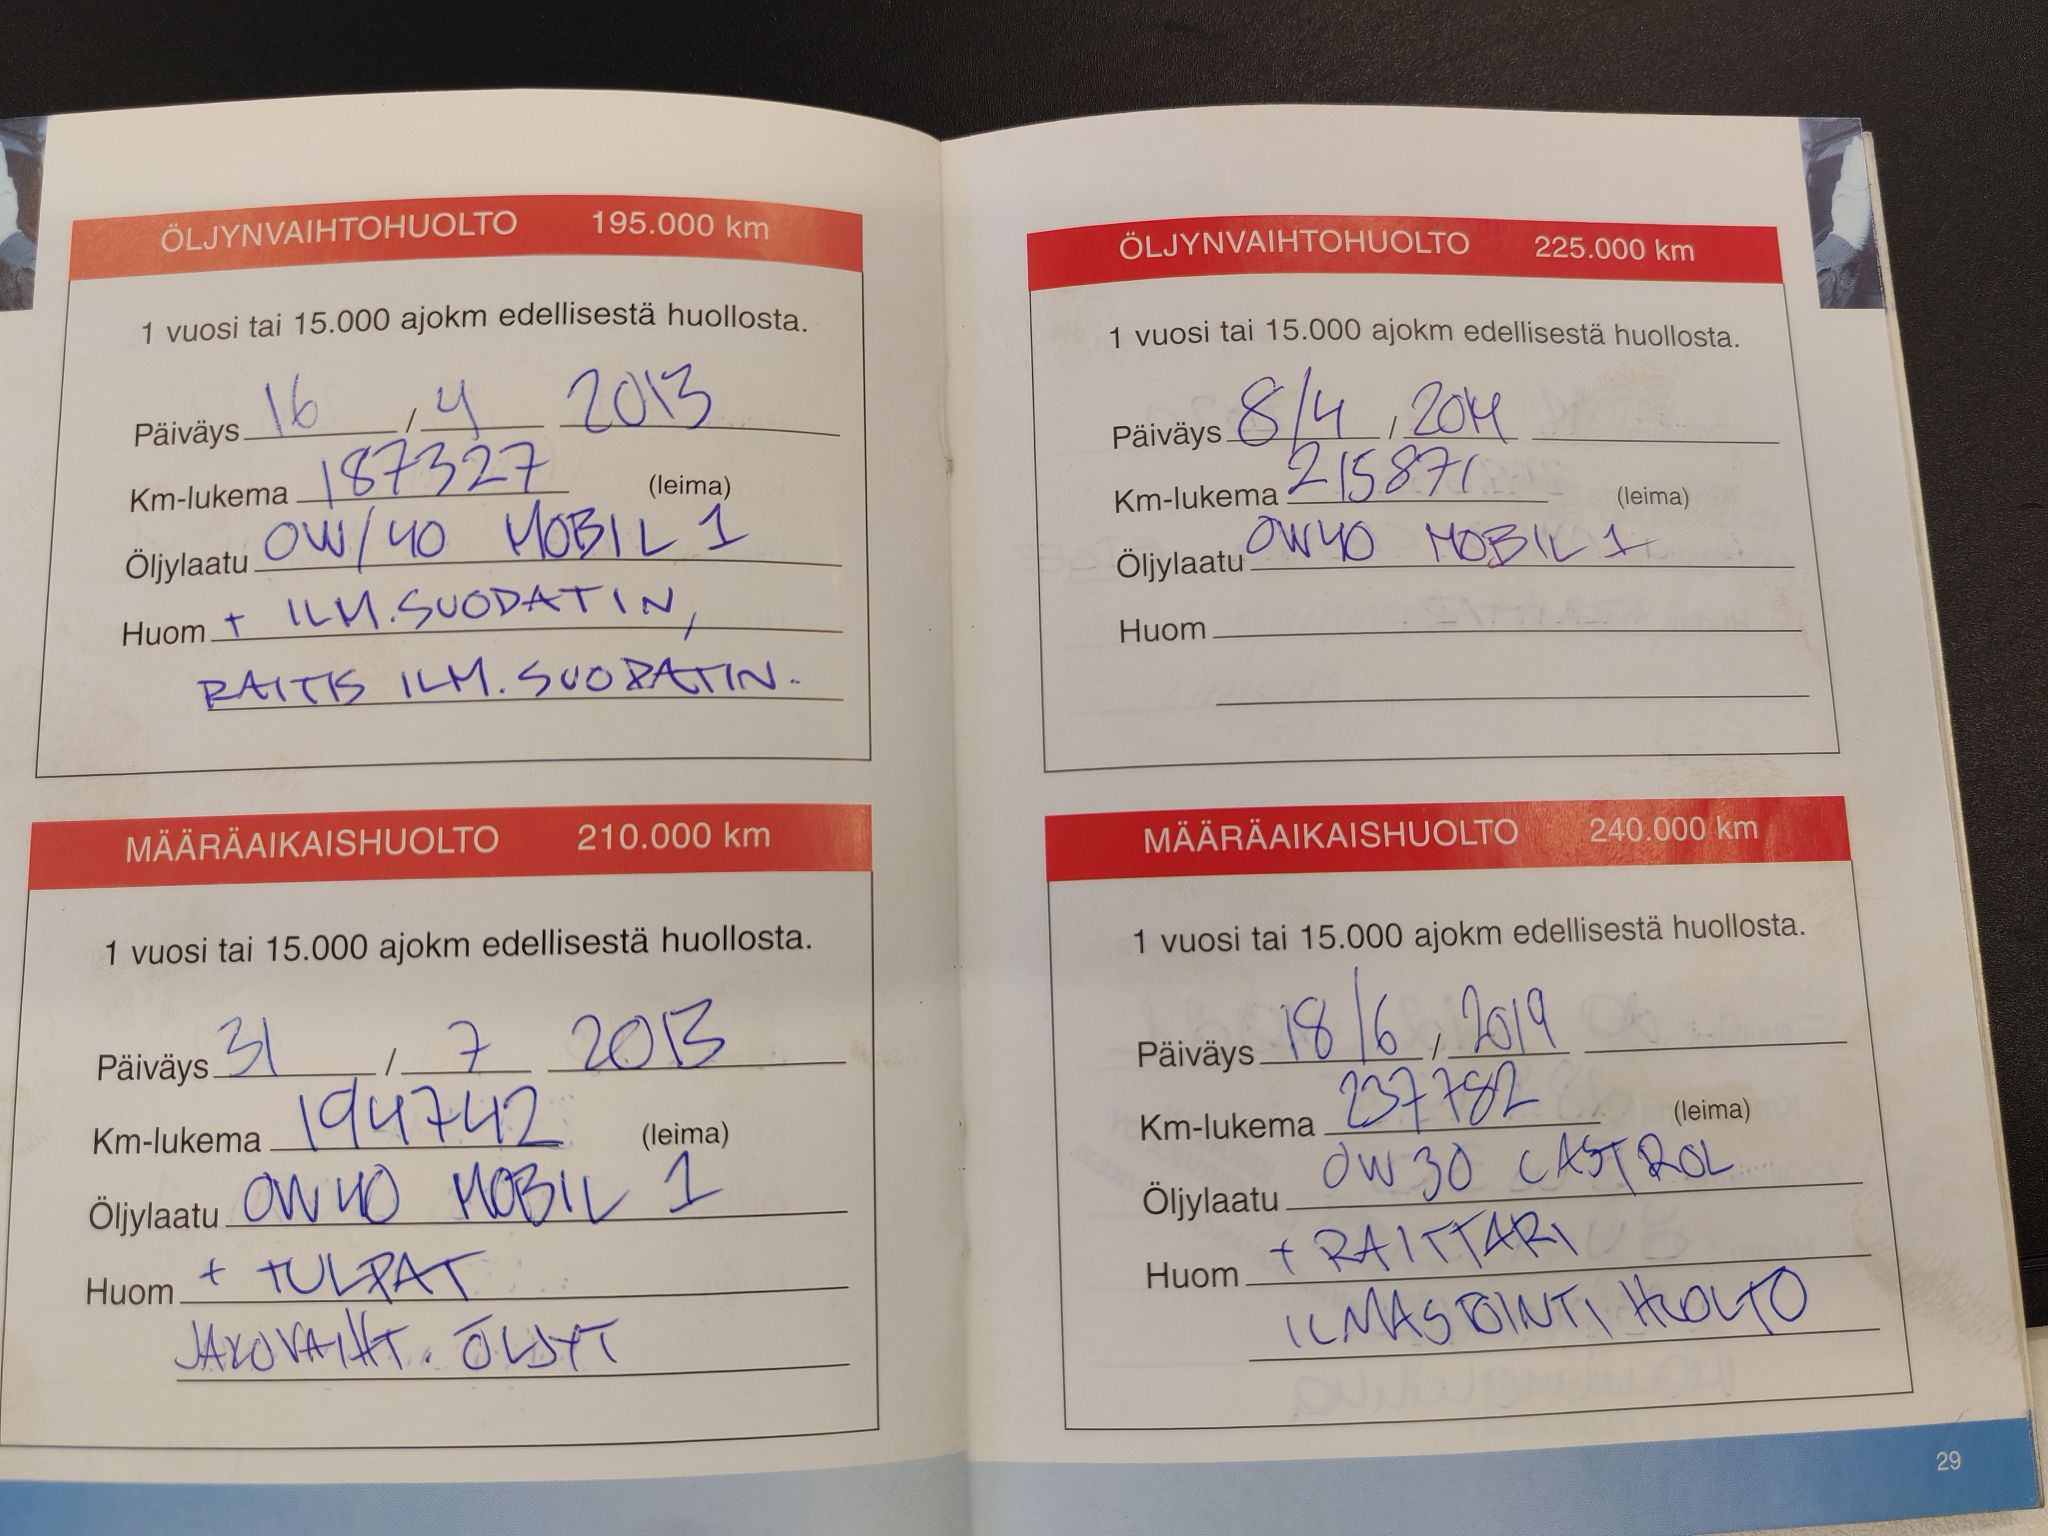 ÖLJYNVAIHTOHUOLTO 195.000 km
1 vuosi tai 15.000 ajokm edellisestä huollosta.
Päiväys 16 / 4 2013
Km-lukema 187327 (leima)
Öljylaatu 0W/40 MOBIL 1
Huom + ILM.SUODATIN,
RAITIS ILM. SUODATIN.
MÄÄRÄAIKAISHUOLTO 210.000 km
1 vuosi tai 15.000 ajokm edellisestä huollosta.
Päiväys 31 / 7 2013
Km-lukema 194742 (leima)
Öljylaatu 0W40 MOBIL 1
Huom + TULPAT
JAKOVAIHT. ÖLJYT
ÖLJYNVAIHTOHUOLTO 225.000 km
1 vuosi tai 15.000 ajokm edellisestä huollosta.
Päiväys 8/4 / 2014
Km-lukema 215871 (leima)
Öljylaatu 0W40 MOBIL 1
Huom
MÄÄRÄAIKAISHUOLTO 240.000 km
1 vuosi tai 15.000 ajokm edellisestä huollosta.
Päiväys 18/6 / 2019
Km-lukema 237782 (leima)
Öljylaatu 0W30 CASTROL
Huom + RAITTARI
ILMASTOINTI HUOLTO
29